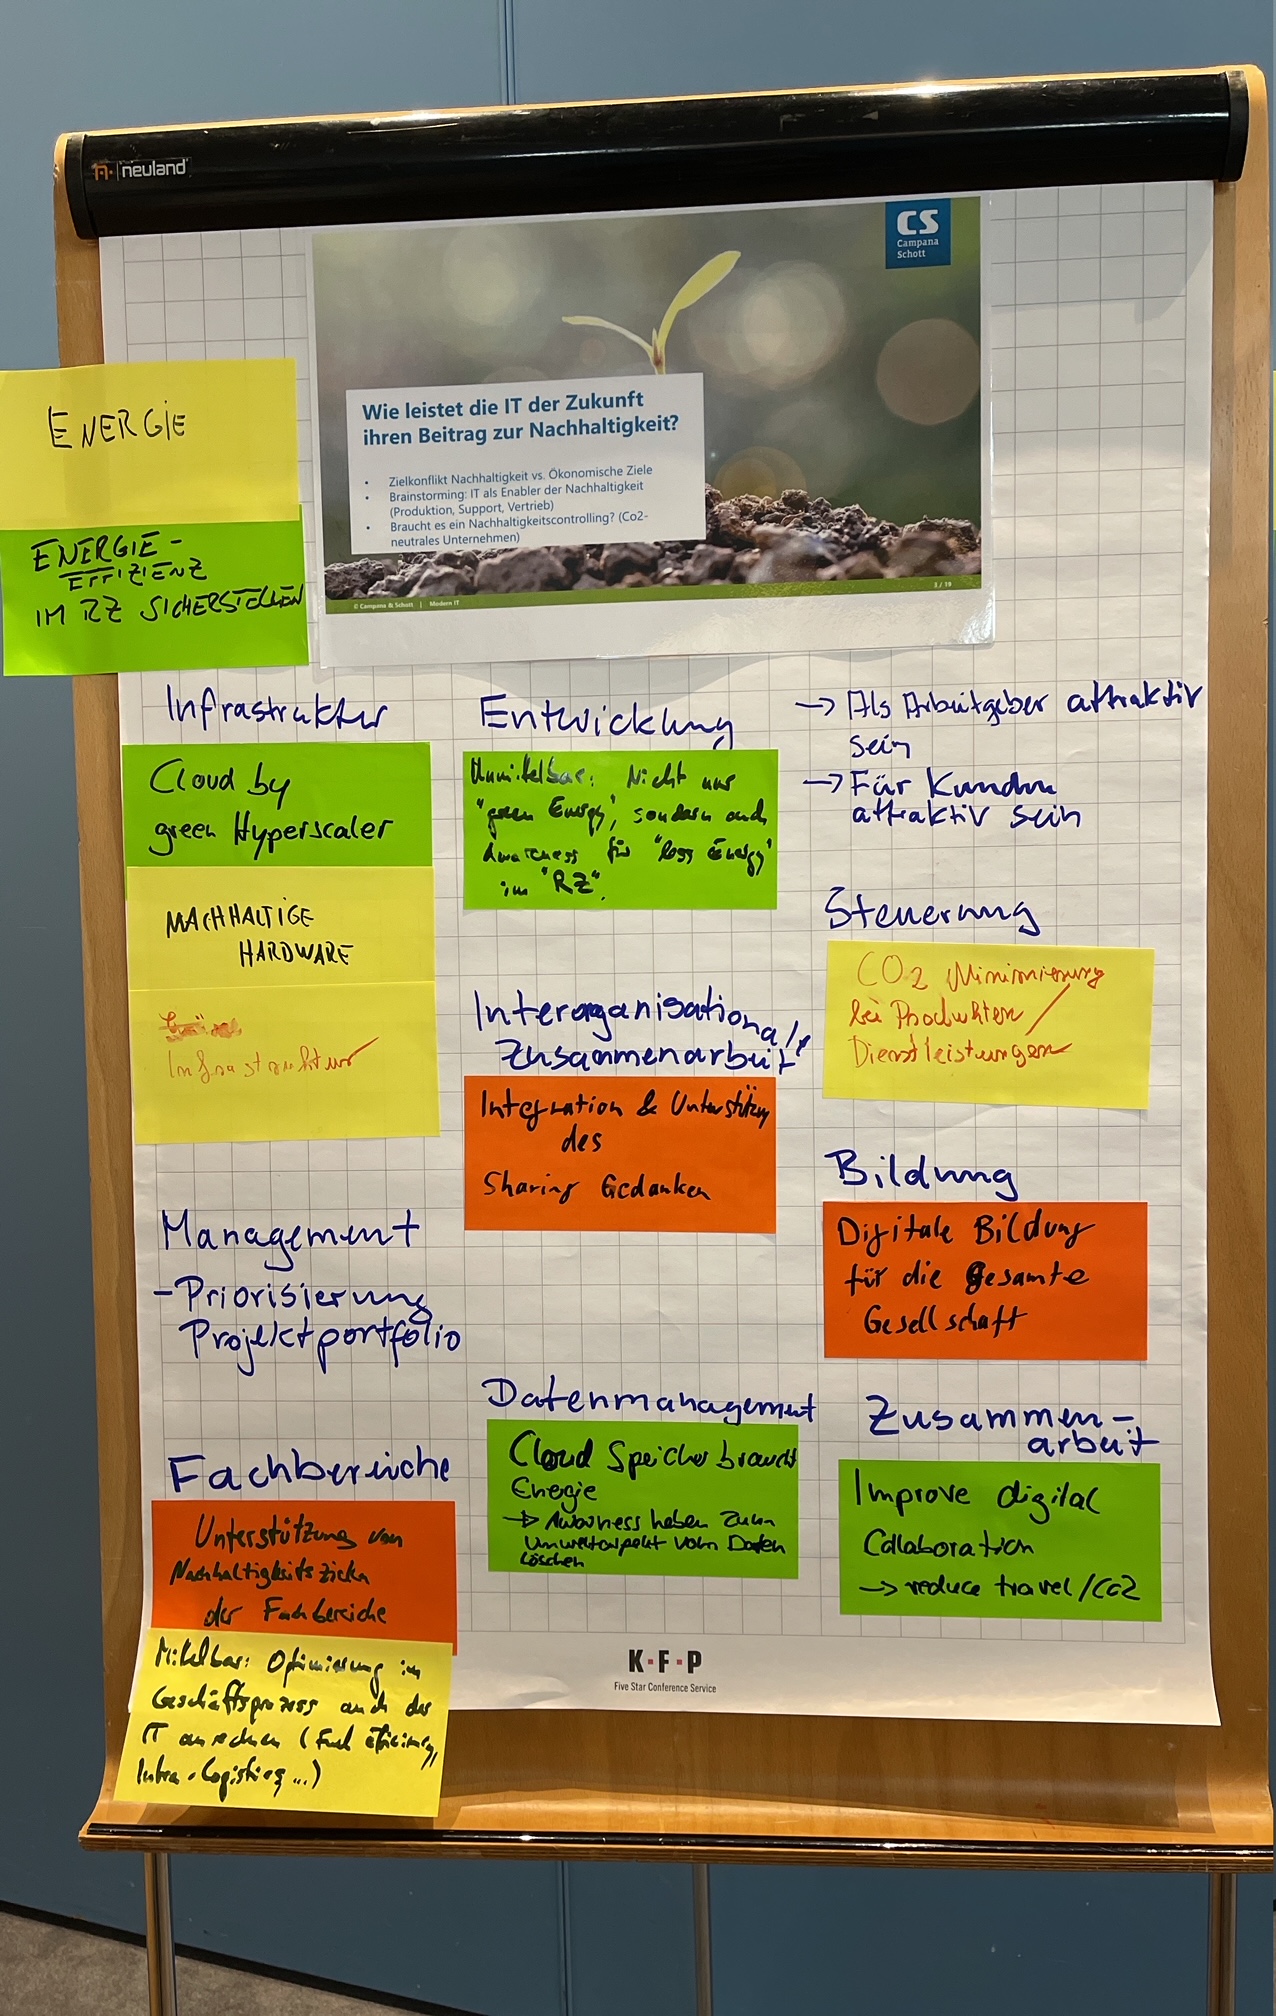 neuland
CS
Campana
Schott
Wie leistet die IT der Zukunft
ihren Beitrag zur Nachhaltigkeit?
• Zielkonflikt Nachhaltigkeit vs. Ökonomische Ziele
• Brainstorming: IT als Enabler der Nachhaltigkeit
(Produktion, Support, Vertrieb)
• Braucht es ein Nachhaltigkeitscontrolling? (Co2-
neutrales Unternehmen)
© Campana & Schott | Modern IT
3 / 19
ENERGIE
ENERGIE-
EFFIZIENZ
IM RZ SICHERSTELLEN
Infrastruktur
Cloud by
green Hyperscaler
NACHHALTIGE
HARDWARE
Infrastruktur
Management
- Priorisierung
Projektportfolio
Fachbereiche
Unterstützung von
Nachhaltigkeitszielen
der Fachbereiche
Mittelbar: Optimierung im
Geschäftsprozess auch der
IT anrechnen (
Intra-Logistics...)
Entwicklung
Unmittelbar: Nicht nur
"green Energy", sondern auch
Awareness für "less Energy"
im "RZ".
Interorganisationale
Zusammenarbeit
Integration & Unterstützung
des
Sharing Gedanken
Datenmanagement
Cloud Speicher braucht
Energie
→ Awareness heben zum
Umweltaspekt vom Daten
löschen
→ Als Arbeitgeber attraktiv
sein
→ Für Kunden
attraktiv sein
Steuerung
CO2 Minimierung
bei Produkten /
Dienstleistungen
Bildung
Digitale Bildung
für die gesamte
Gesellschaft
Zusammen-
arbeit
Improve digital
Collaboration
→ reduce travel/CO2
K·F·P
Five Star Conference Service